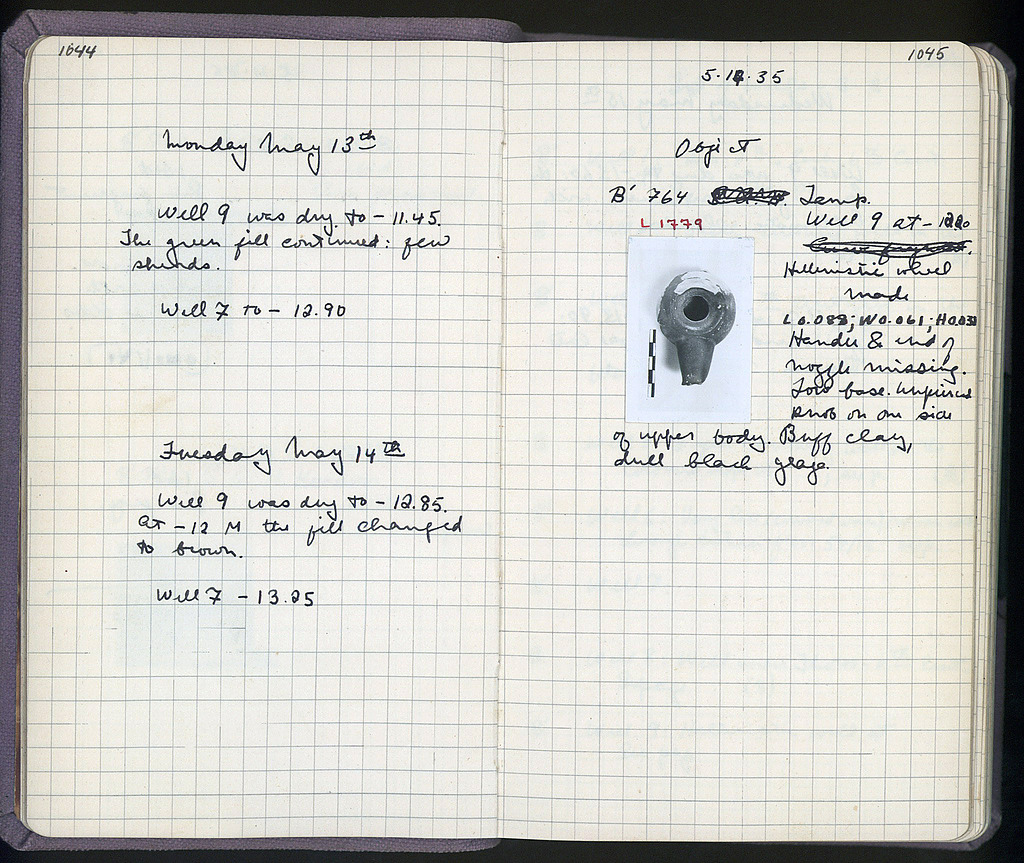 1044
Monday May 13th
Well 9 was dug to - 11.45.
The green fill continued: few
sherds.
Well 7 to - 12.90
Tuesday May 14th
Well 9 was dug to - 12.85.
At - 12 M the fill changed
to brown.
Well 7 - 13.25
1045
5·14·35
Object
B' 764 Lamp.
L 1779
Well 9 at -
Hellenistic wheel
made
L 0.088; W 0.061; H 0.033
Handle & end of
nozzle missing.
Low base. Unpierced
knob on one side
of upper body. Buff clay,
dull black glaze.